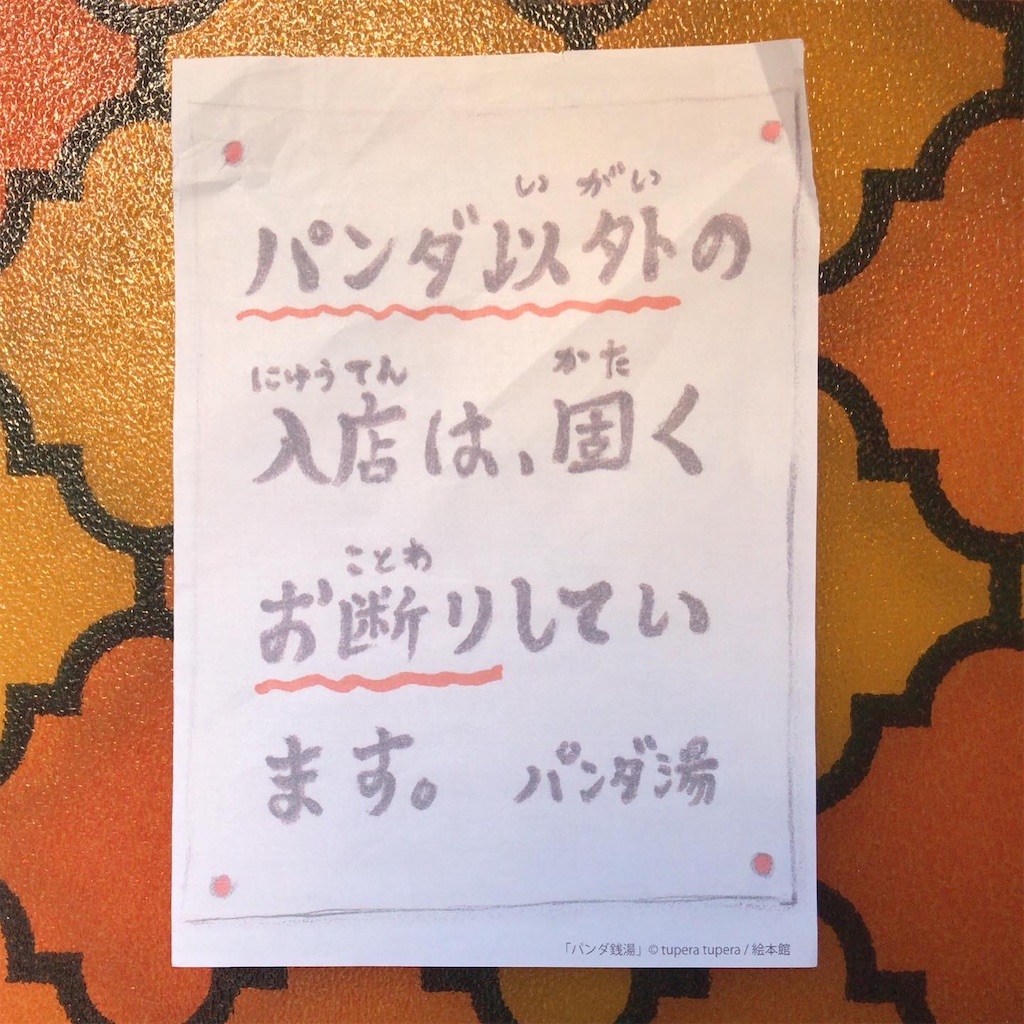 いがい
パンダ以外の
にゅうてん かた
入店は、固く
ことわ
お断りしてい
ます。 パンダ湯
「パンダ銭湯」© tupera tupera / 絵本館